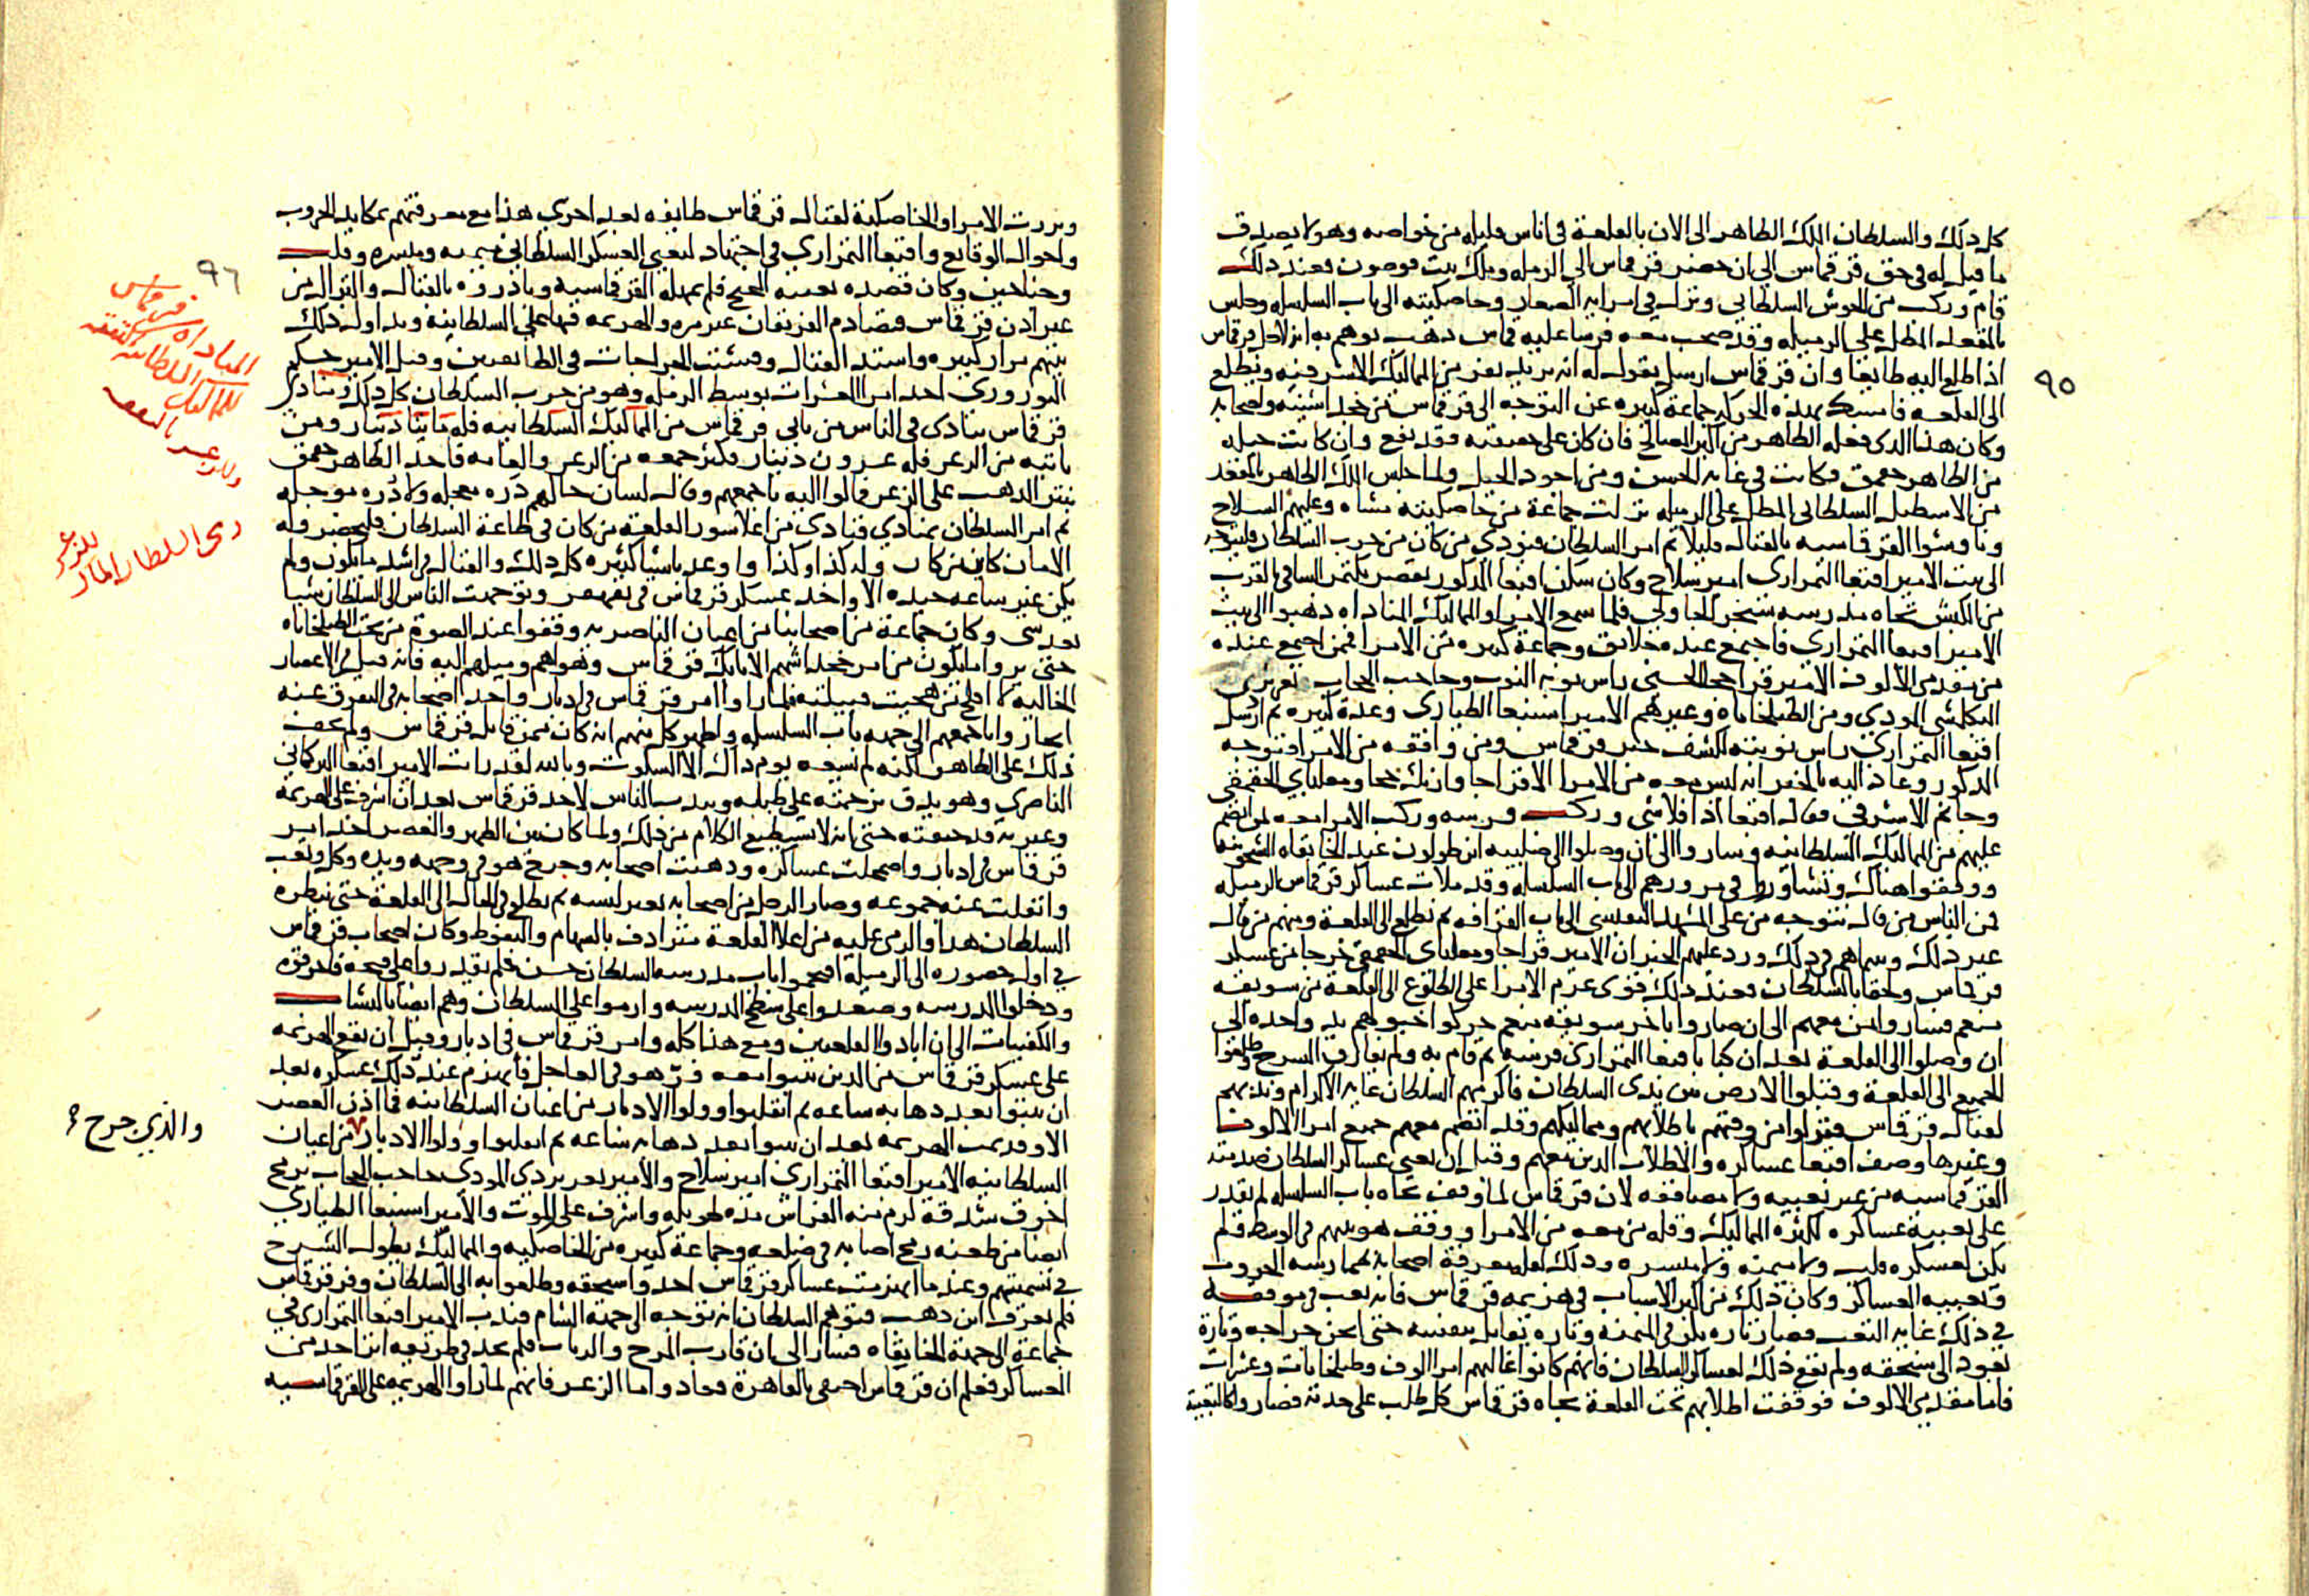 كل ذلك والسلطان الملك الظاهر الى الان بالقلعة فى اناس قليله من خواصه وهو لا يصدق
ما قيل له فى حق قرقماس الى ان حضر قرقماس الى الرميله وملك بيت قوصون فعند ذلك
قام وركب من الحوش السلطانى ونزل فى امرايه الصغار وخاصكيته الى باب السلسله وجلس
بالمقعد المطل على الرميله وقد صحب معه فرسا عليه قماس ذهب يوهم به انه لاجل قرقماس
اذا طلع اليه طايعا وان قرقماس ارسل يقول له انه يريد يفر من المماليك الاشرفيه ويطلع
٩٥
الى القلعة فامسك بهذه الحركه جماعة كبيره عن التوجه الى قرقماس من خجداشيته واصحابه
وكان هذا الذى فعله الظاهر من اكبر المصالح فان كان على حقيقته فقد نفع وان كانت حيله
من الظاهر جقمق فكانت فى غاية الحسن ومن اجود الحيل ولما جلس الملك الظاهر بالمقعد
من الاسطبل السلطانى المطل على الرميله نزلت جماعة من خاصكيته مشاه وعليهم السلاح
وناوشوا القرقماسيه بالقتال قليلا ثم امر السلطان فنودى من كان من حزب السلطان فليتوجه
الى بيت الامير اقبغا التمرازى امير سلاح وكان سكن اقبغا المذكور بقصر بكتمر الساقى بالقرب
من الكبش تجاه مدرسه سنجر الجاولى فلما سمع الامرا والمماليك المناداه ذهبوا الى بيت
الامير اقبغا التمرازى فاجتمع عنده خلائق وجماعة كبيره من الامرا فممن اجتمع عنده
من مقدمى الالوف الامير قراخجا الحسنى راس نوبه النوب وحاجب الحجاب تغرى بردى
البكلمشى الموذى ومن الطبلخاناه وغيرهم الامير اسنبغا الطيارى وعدة كبيره ثم ارسل
اقبغا التمرازى راس نوبته لكشف خبر قرقماس ومن وافقه من الامرا فتوجه
المذكور وعاد اليه بالخبر انه ليس معه من الامرا الا قراجا وازبك خجا ومغلباى الجقمقى
وجانم الاشرفى فقال اقبغا اذا فلا شى وركب فرسه وركب الامرا معه لمن انضم
عليهم من المماليك السلطانيه وساروا الى ان وصلوا الى صليبه ابن طولون عند الخانقاه الشيخونيه
ووقفوا هناك وتشاوروا فى مرورهم الى باب السلسله وقد ملات عساكر قرقماس الرميله
فمن الناس من قال نتوجه من على المشهد النفيسى الى باب القرافه ثم نطلع الى القلعة ومنهم من قال
غير ذلك وبينما هم فى ذلك ورد عليهم الخبر ان الامير قراجا ومغلباى الجقمقى خرجا من عسكر
قرقماس ولحقا بالسلطان فعند ذلك قوى عزم الامرا على الطلوع الى القلعة من سويقه
منعم فسار واى معهم الى ان صاروا باخر سويقه منعم حركوا خيولهم يد واحده الى
ان وصلوا الى القلعة بعد ان كبا باقبغا التمرازى فرسه ثم قام به ولم يفارق السرج وطلعوا
الجميع الى القلعة وقبلوا الارض بين يدى السلطان فاكرمهم السلطان غايه الاكرام وندبهم
لقتال قرقماس فنزلوا من وقتهم باطلابهم ومماليكهم وقد انضم معهم جميع امرا الالوف
وغيرها وصف اقبغا عساكره والاطلاب الذين معهم وقبل ان يعبى عساكر السلطان صدمته
القرقماسيه من غير تعبيه ولا مصاففه لان قرقماس لما وقف تجاه باب السلسله لم يقدر
على تعبيه عساكره لكثره المماليك وقله من معه من الامرا ووقف هو بينهم فى الوسط فلم
يكن لعسكره قلب ولا ميمنه ولا ميسره وذلك لقله معرفة اصحابه بممارسه الحروب
وتعبيه العساكر وكان ذلك من اكبر الاسباب فى هزيمه قرقماس فانه تعب فى موقفه
فى ذلك غايه التعب فصار تاره يكر فى الميمنه وتاره يقاتل بنفسه حتى اثخن جراحه وتارة
يعود الى سنجقه ولم يقع ذلك لعساكر السلطان فانهم كانوا غالبهم امرا الوف وطبلخانات وعشرات
فاما مقدمى الالوف فوقفت اطلابهم تحت القلعة تجاه قرقماس كل طلب على حدته فصاروا كالتعبية
وبرزت الامرا والخاصكية لقتال قرقماس طايفه بعد اخرى هذا مع معرفتهم بمكايد الحروب
واحوال الوقايع واقبغا التمرازى فى اجتهاد لتعبى العسكر السلطانى ميمنه وميسره وقلب
وجناحين وكان قصده تعبيه المجنح فلم يمهله القرقماسيه وبادروه بالقتال والنزال من
٩٦
غير اذن قرقماس فتصادم الفريقان غير مره والهزيمه فيها على السلطانيه وتداول ذلك
بينهم مرار كبيره واشتد القتال وفشت الجراحات فى الطايفتين وقتل الامير جكم
النوروزى احد امرا العشرات بوسط الرميله وهو من حزب السلطان كل ذلك ومنادى
المناداه من قرقماس
للمماليك السلطانيه بالنفقه
وللزعر بالنفقه
قرقماس ينادى فى الناس من ياتى قرقماس من المماليك السلطانيه فله مايتا دينار ومن
ياتيه من الزعر فله عشرون دينار فكثر جمعه من الزعر والعامه فاخذ الظاهر جقمق
ينثر الذهب على الزعر فمالوا اليه باجمعهم وقال لسان حالهم ذره معجله ولا دره موجله
رمى السلطان المال
للزعر
ثم امر السلطان بمنادى فنادى من اعلا سور القلعة من كان فى طاعة السلطان فليحضر وله
الامان كاين من كان وله كذا وكذا واوعد باشيا كثيره كل ذلك والقتال فى اشد ما يكون ولم
يكن غير ساعه جيده الا واخذ عسكر قرقماس فى تقهقر وتوجهت الناس الى السلطان شيا
بعد شى وكان جماعة من اصحابنا من اعيان الناصريه وقفوا عند الصوة من تحت الطبلخاناه
حتى يروا ما يكون من امر خجداشهم الاتابك قرقماس وهواهم وميلهم اليه فانه قيل فى الاعصار
الخاليه لا افلح من هجيت قبيلته فلما راوا امر قرقماس فى ادبار واخذ اصحابه فى التفرق عنه
انحازوا باجمعهم الى جهه باب السلسله واظهر كل منهم انه كان ممن قاتل قرقماس ولم يخف
ذلك على الظاهر لكنه لم يسعه يوم ذاك الا السكوت وبالله لقد رايت الامير اقبغا التركمانى
الناصرى وهو يدق بزخمته على طبله ويندب الناس لاخذ قرقماس بعد ان اشرف على الهزيمه
وغيره قد حنقته حتى انه لا يستطيع الكلام من ذلك ولما كان بين الظهر والعصر اخذ امر
قرقماس فى ادبار واضمحلت عساكره وذهبت اصحابه وجرح هو فى وجهه ويده وكل وتعب
وانفلت عنه جموعه وصار الرجل من اصحابه يغير لبسه ثم يطلع فى الحال الى القلعة حتى ينظره
السلطان هذا والرمى عليه من اعلا القلعة مترادف بالسهام والنفوط وكان اصحاب قرقماس
فى اول حضوره الى الرميلة اقحموا باب مدرسه السلطان حسن فلم يقدروا على فتحه فاحرقوه
ودخلوا المدرسه وصعدوا على سطح المدرسه وارموا على السلطان وهم ايضا بالنشاب
والكفيات الى ان ابادوا القلعيين ومع هذا كله وامر قرقماس فى ادبار وقبل ان تقع الهزيمه
على عسكر قرقماس من الذين ثبتوا معه فر هو فى العاجل فانهزم عند ذلك عسكره بعد
ان ثبتوا بعد ذهابه ساعه ثم انقلبوا وولوا الادبار من اعيان السلطانيه فما اذن العصر
والذى جرح
الا وقد تمت الهزيمه بعد ان ثبتوا بعد ذهابه ساعه ثم انقلبوا وولوا الادبار من اعيان
السلطانيه الامير اقبغا التمرازى امير سلاح والامير تغرى بردى الموذى حاجب الحجاب برمح
اخرق شدقه لزم منه الفراش مده طويله واشرف على الموت والامير اسنبغا الطيارى
ايضا من طعنه رمح اصابه فى ضلعه وجماعة كبيره من الخاصكيه والمماليك يطول الشرح
فى تسميتهم وعندما انهزمت عساكر قرقماس اخذوا سنجقه وطلعوا به الى السلطان وفر قرقماس
فلم يعرف اين ذهب فتوهم السلطان انه توجه الى جهة الشام فندب الامير اقبغا التمرازى فى
جماعة الى جهة الخانقاه فسار الى ان قارب المرج والزيات فلم يجد فى طريقه اثر احد من
العساكر فعلم ان قرقماس اختفى بالقاهرة فعاد واما الزعر فانهم لما راوا الهزيمه على القرقماسيه